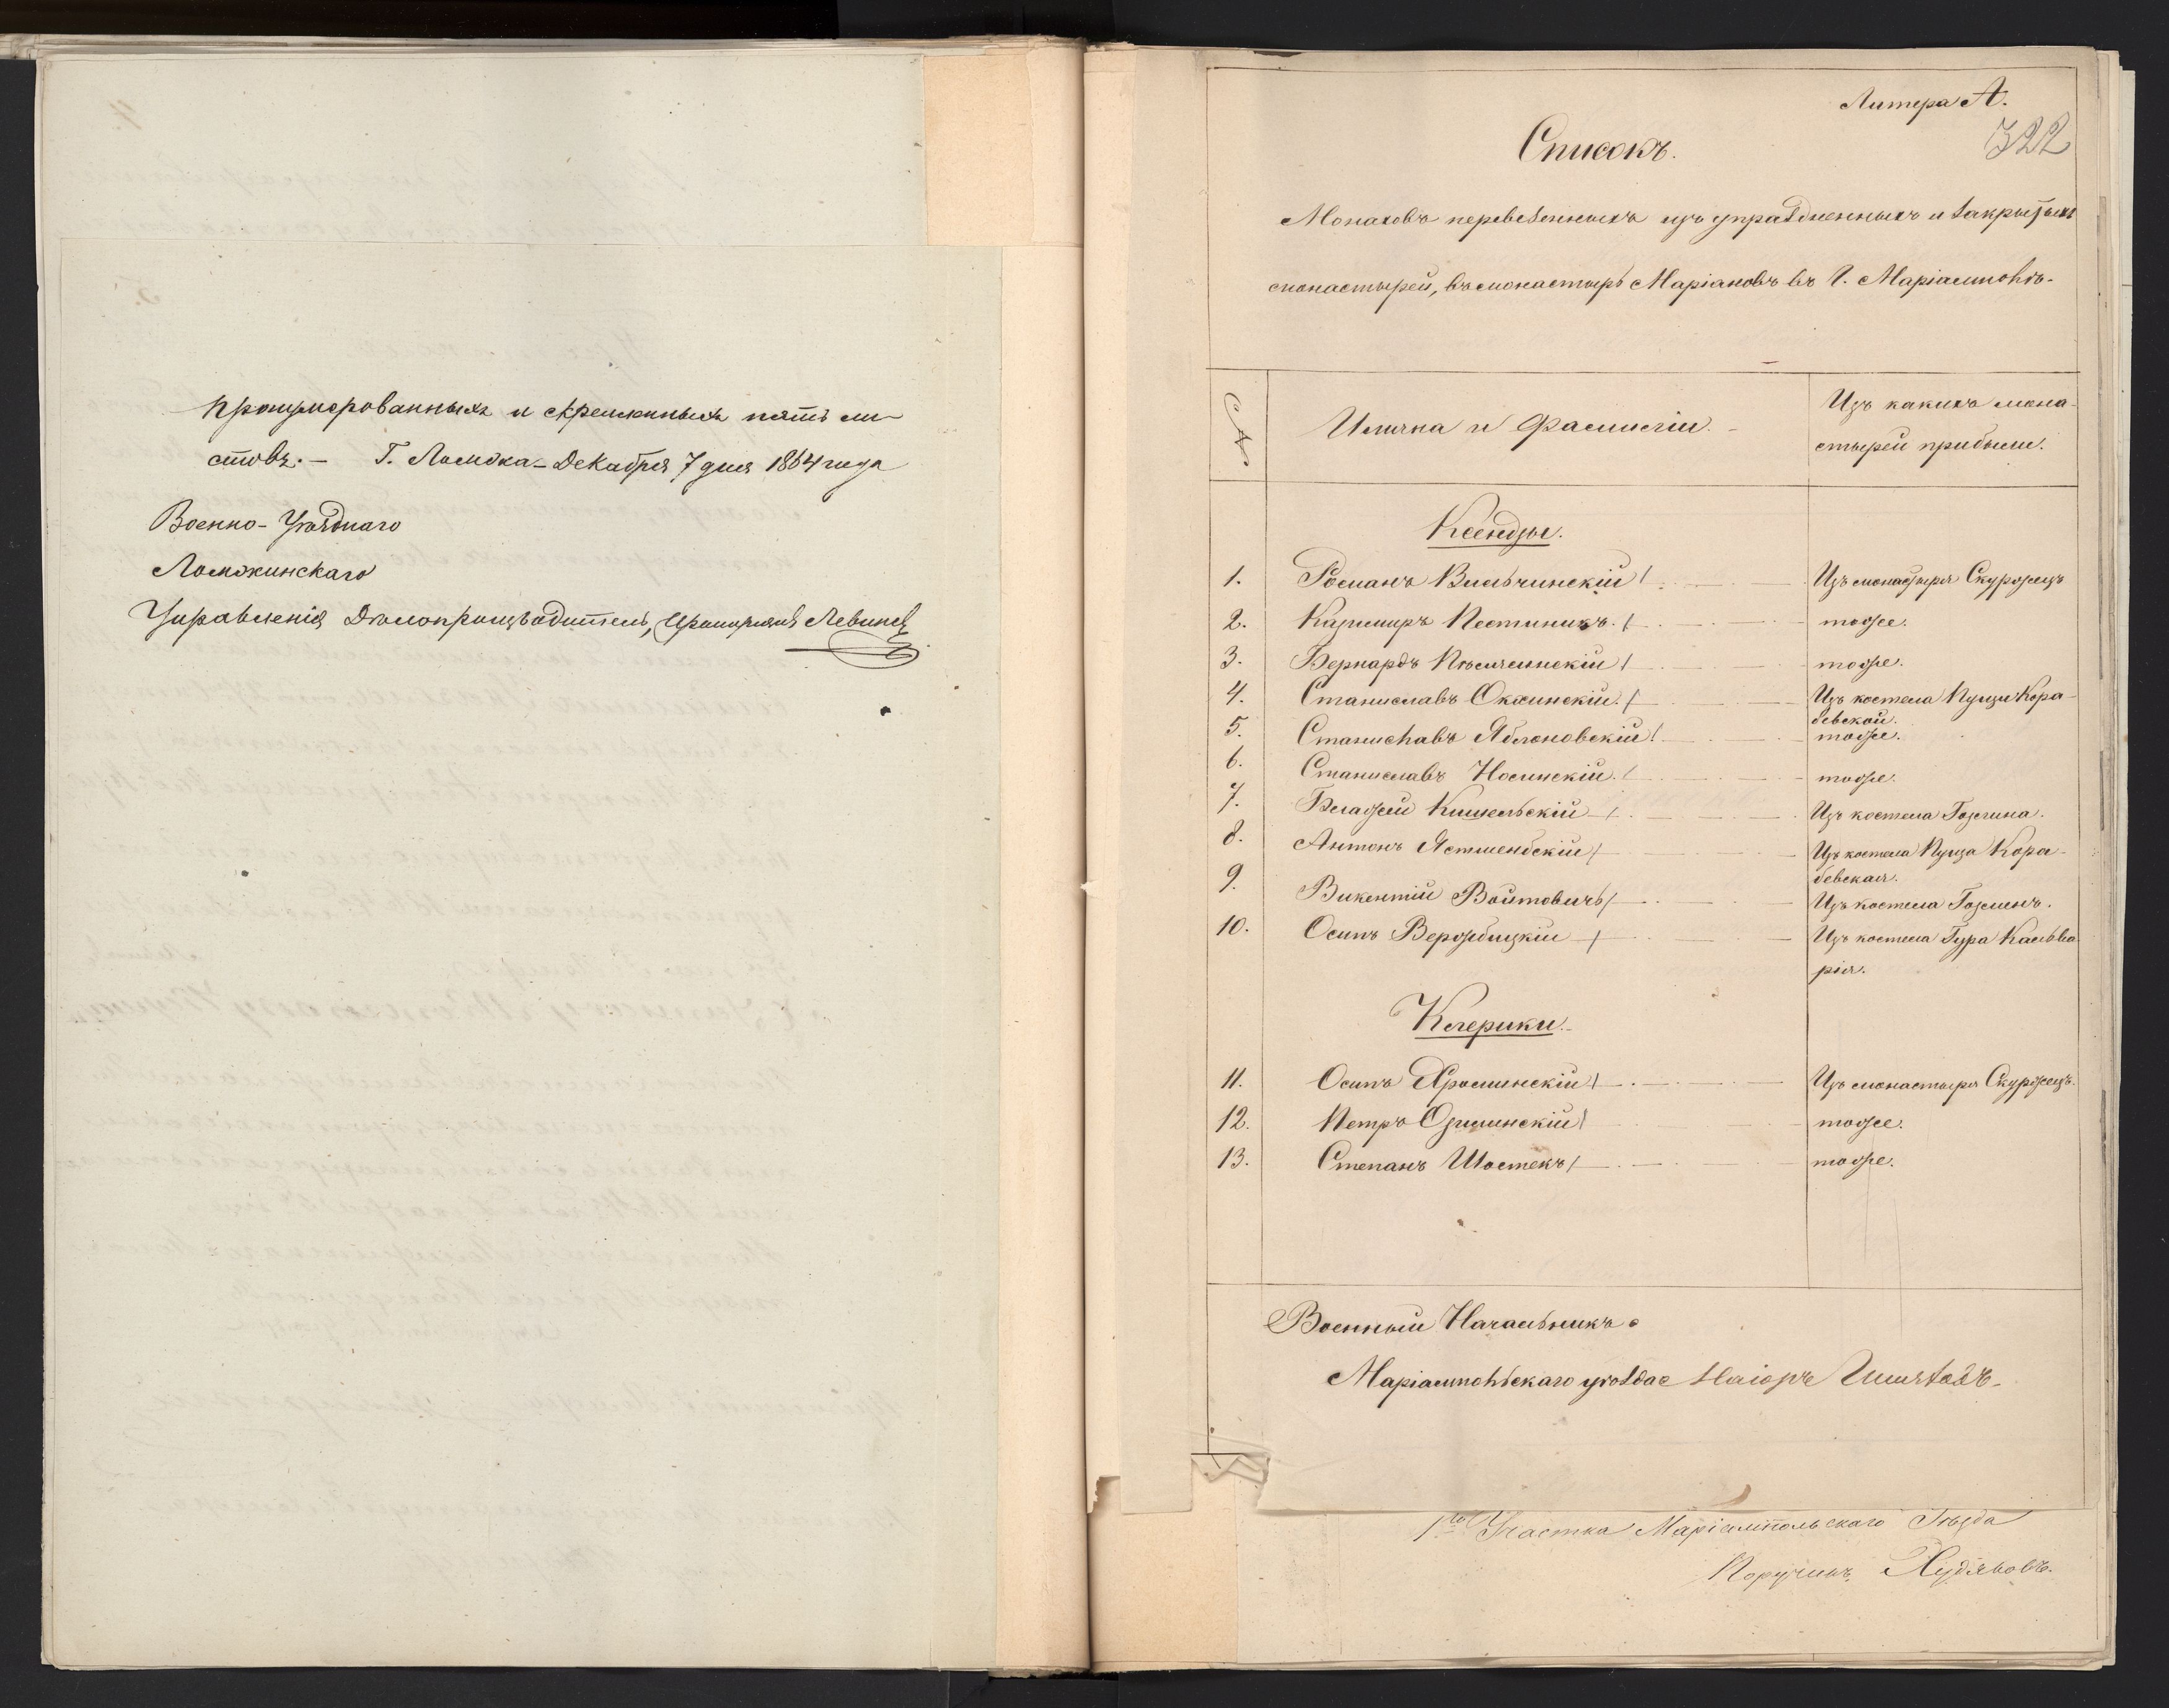 пронумерованныхъ и скрепленныхъ пять ли-
стовъ. — Г. Ломжа - Декабря 7 дня 1864 года
Военно-Уѣзднаго
Ломжинскаго
Управленія Дѣлопроизводитель, Прапорщикъ Левинъ
Литера А.
322
Списокъ.
Монаховъ переведенныхъ изъ упраздненныхъ и закрытыхъ
монастырей, въ монастырь Маріановъ въ Г. Маріамполѣ.
№
Имяна и Фамиліи.
Изъ какихъ мона-
стырей прибыли.
Ксендзы.
1. Романъ Вильчинскій Изъ монастыря Скуржецъ
2. Казимиръ Пестиникъ. тоже.
3. Бернардъ тоже.
4. Станиславъ Оксинскій. Изъ костела Пущи Кора-
бевской.
5. Станиславъ Яблоновскій тоже.
6. Станиславъ Носинскій. тоже.
7. Блажей Кишельскій Изъ костела Гозлина.
8. Антонъ Ястшембскій Изъ костела Пуща Кора-
бевская.
9. Викентій Войтовичъ Изъ костела Гозлинъ.
10. Осипъ Вержбицкій Изъ костела Гура Кальва-
рія.
Клерики.
11. Осипъ Хросцинскій Изъ монастыря Скуржецъ.
12. Петръ Озиминскій тоже.
13. Степанъ Шостекъ тоже.
Военный Начальникъ
Маріампольскаго уѣзда Маіоръ
1го Участка Маріампольскаго Уѣзда
Поручикъ Худяковъ.